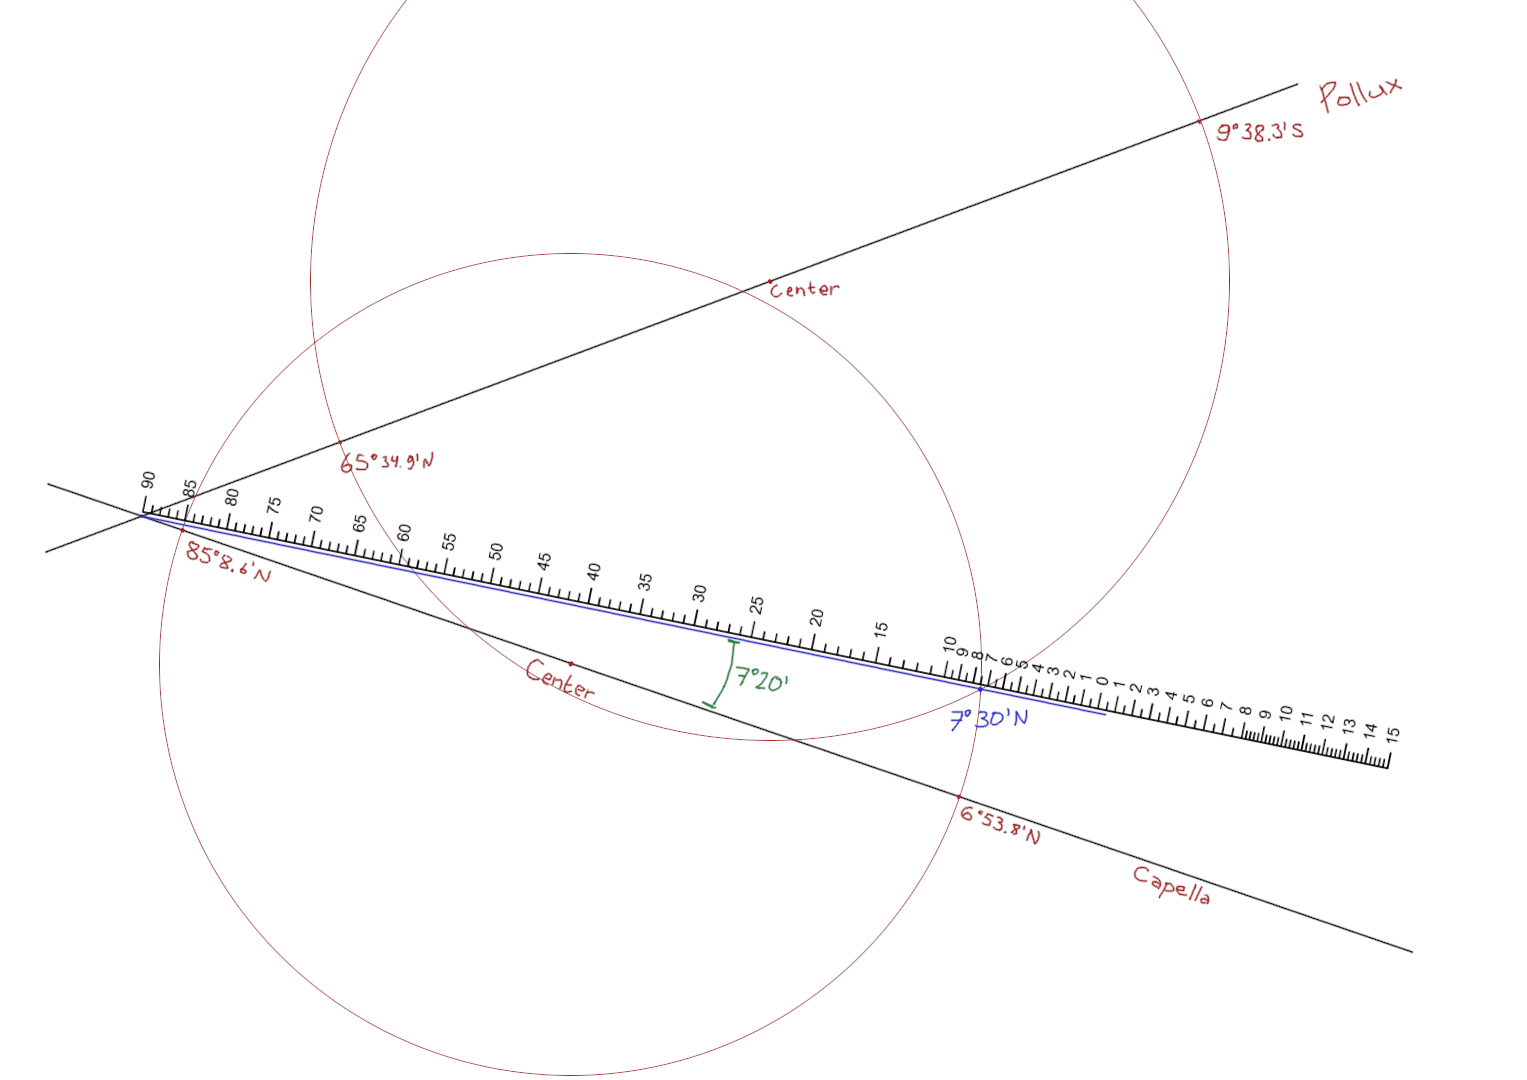 Pollux
9°38.3'S
Center
65°34.9'N
90
85
80
75
70
65
60
55
50
45
40
35
30
25
20
15
10
9
8
7
6
5
4
3
2
1
0
1
2
3
4
5
6
7
8
9
10
11
12
13
14
15
85°8.6'N
Center
7°20'
7°30'N
6°53.8'N
Capella